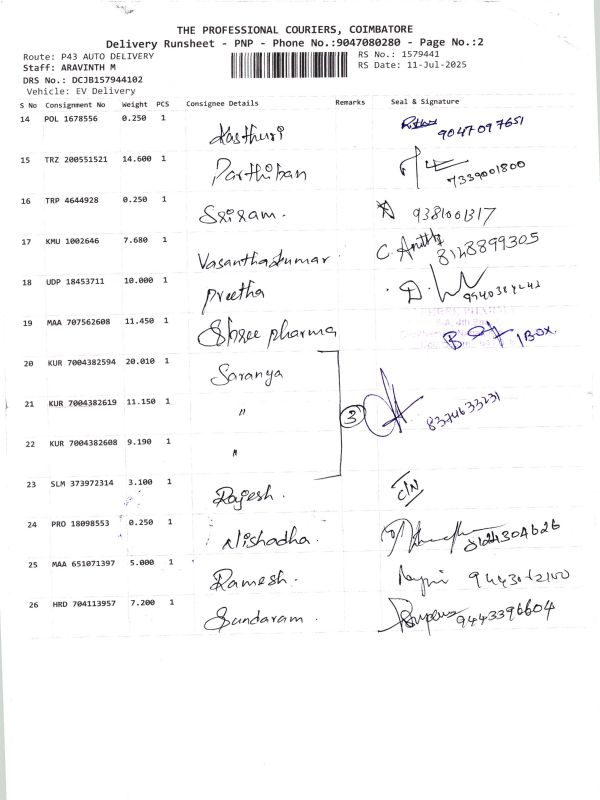 THE PROFESSIONAL COURIERS, COIMBATORE
Delivery Runsheet - PNP - Phone No.:9047080280 - Page No.:2
Route: P43 AUTO DELIVERY
RS No.: 1579441
Staff: ARAVINTH M
RS Date: 11-Jul-2025
DRS No.: DCJB157944102
Vehicle: EV Delivery
S No Consignment No Weight PCS Consignee Details Remarks Seal & Signature
14 POL 1678556 0.250 1 Kasthuri 9047097651
15 TRZ 200551521 14.600 1 Parthiban 7339001800
16 TRP 4644928 0.250 1 Sriram. 9381001317
17 KMU 1002646 7.680 1 Vasanthakumar. 8148899305
18 UDP 18453711 10.000 1 Preetha
19 MAA 707562608 11.450 1 Shree pharma 1 BOX.
20 KUR 7004382594 20.010 1 Saranya
21 KUR 7004382619 11.150 1 " 3 8374633231
22 KUR 7004382608 9.190 1 "
23 SLM 373972314 3.100 1 Rajesh. C/N
24 PRO 18098553 0.250 1 Nishadha. 8124304626
25 MAA 651071397 5.000 1 Ramesh.
26 HRD 704113957 7.200 1 Sundaram. 9443396604